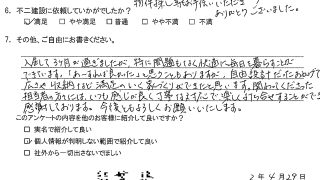 物件探し等お手伝いいただき
ありがとうございました。
6. 不二建設に依頼していかがでしたか?
☑満足 □やや満足 □普通 □やや不満 □不満
7. その他、ご自由にお書きください。
入居して3ヶ月が過ぎましたが、特に問題もなく快適に毎日を暮らすことが
できています。「あーすれば良かった」と思うこともありますが、自由設計だったおかげで
広さや収納など満足のいく家づくりができたと思います。関わってくださった
担当者の方々には、いつも感じが良く丁寧な対応で楽しく打ち合せすることができ
感謝しております。今後ともよろしくお願いいたします。
このアンケートの内容を他のお客様に紹介して良いですか?
□ 実名で紹介して良い
☑ 個人情報が判明しない範囲で紹介して良い
□ 社外から一切出さないでほしい
2年4月29日